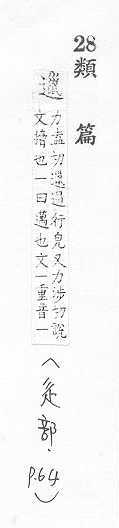 28 類篇
邋
力盍切邋遢行皃又力涉切說
文搚也一曰邁也文一重音一
(辵部.P.64)